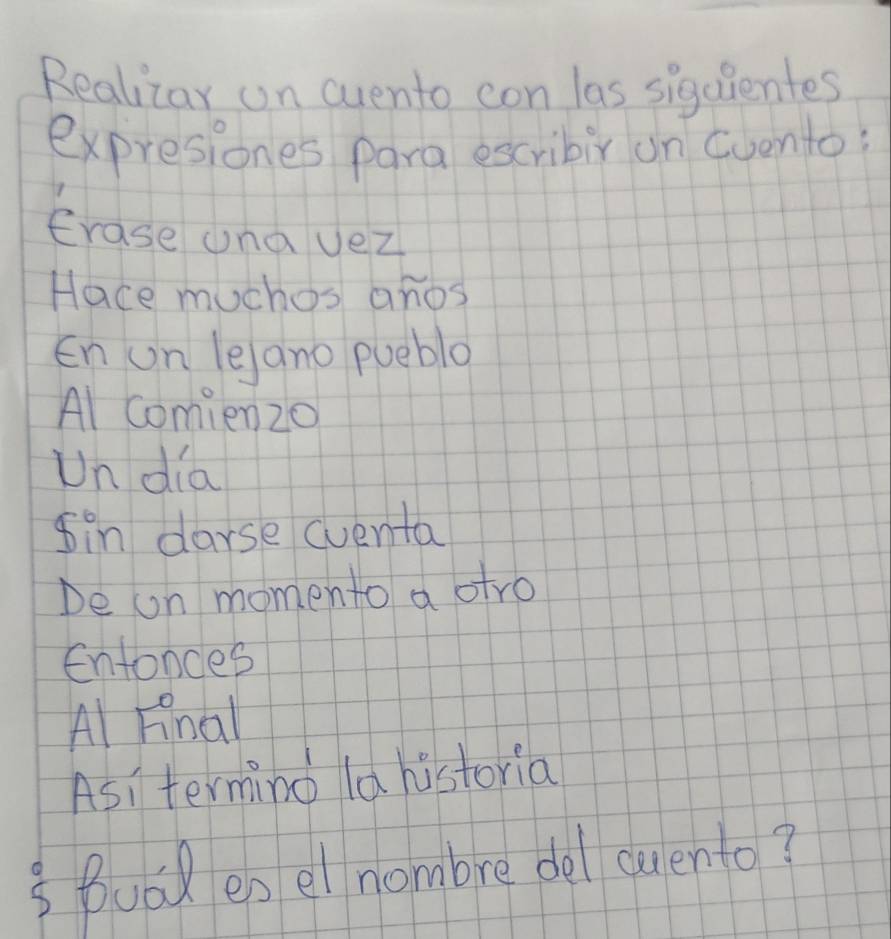 Realizar un cuento con las siguientes
expresiones para escribir un cuento:
Érase una vez
Hace muchos años
En un lejano pueblo
Al comienzo
Un día
Sin darse cuenta
De un momento a otro
Entonces
Al Final
Así terminó la historia
¿Cuál es el nombre del cuento?